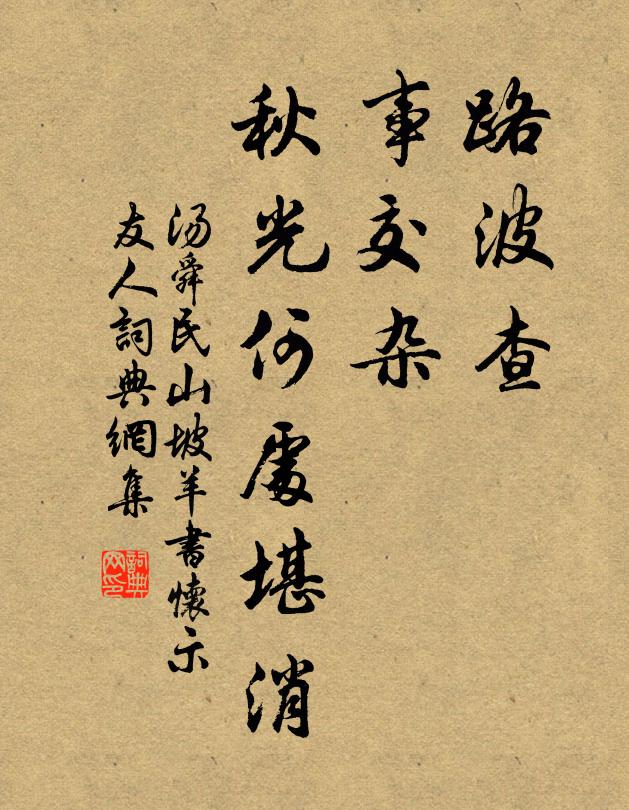 路波查
事交杂
秋光何處堪消
汤舜民山坡羊書懷示
友人詞典網集
詞典网印